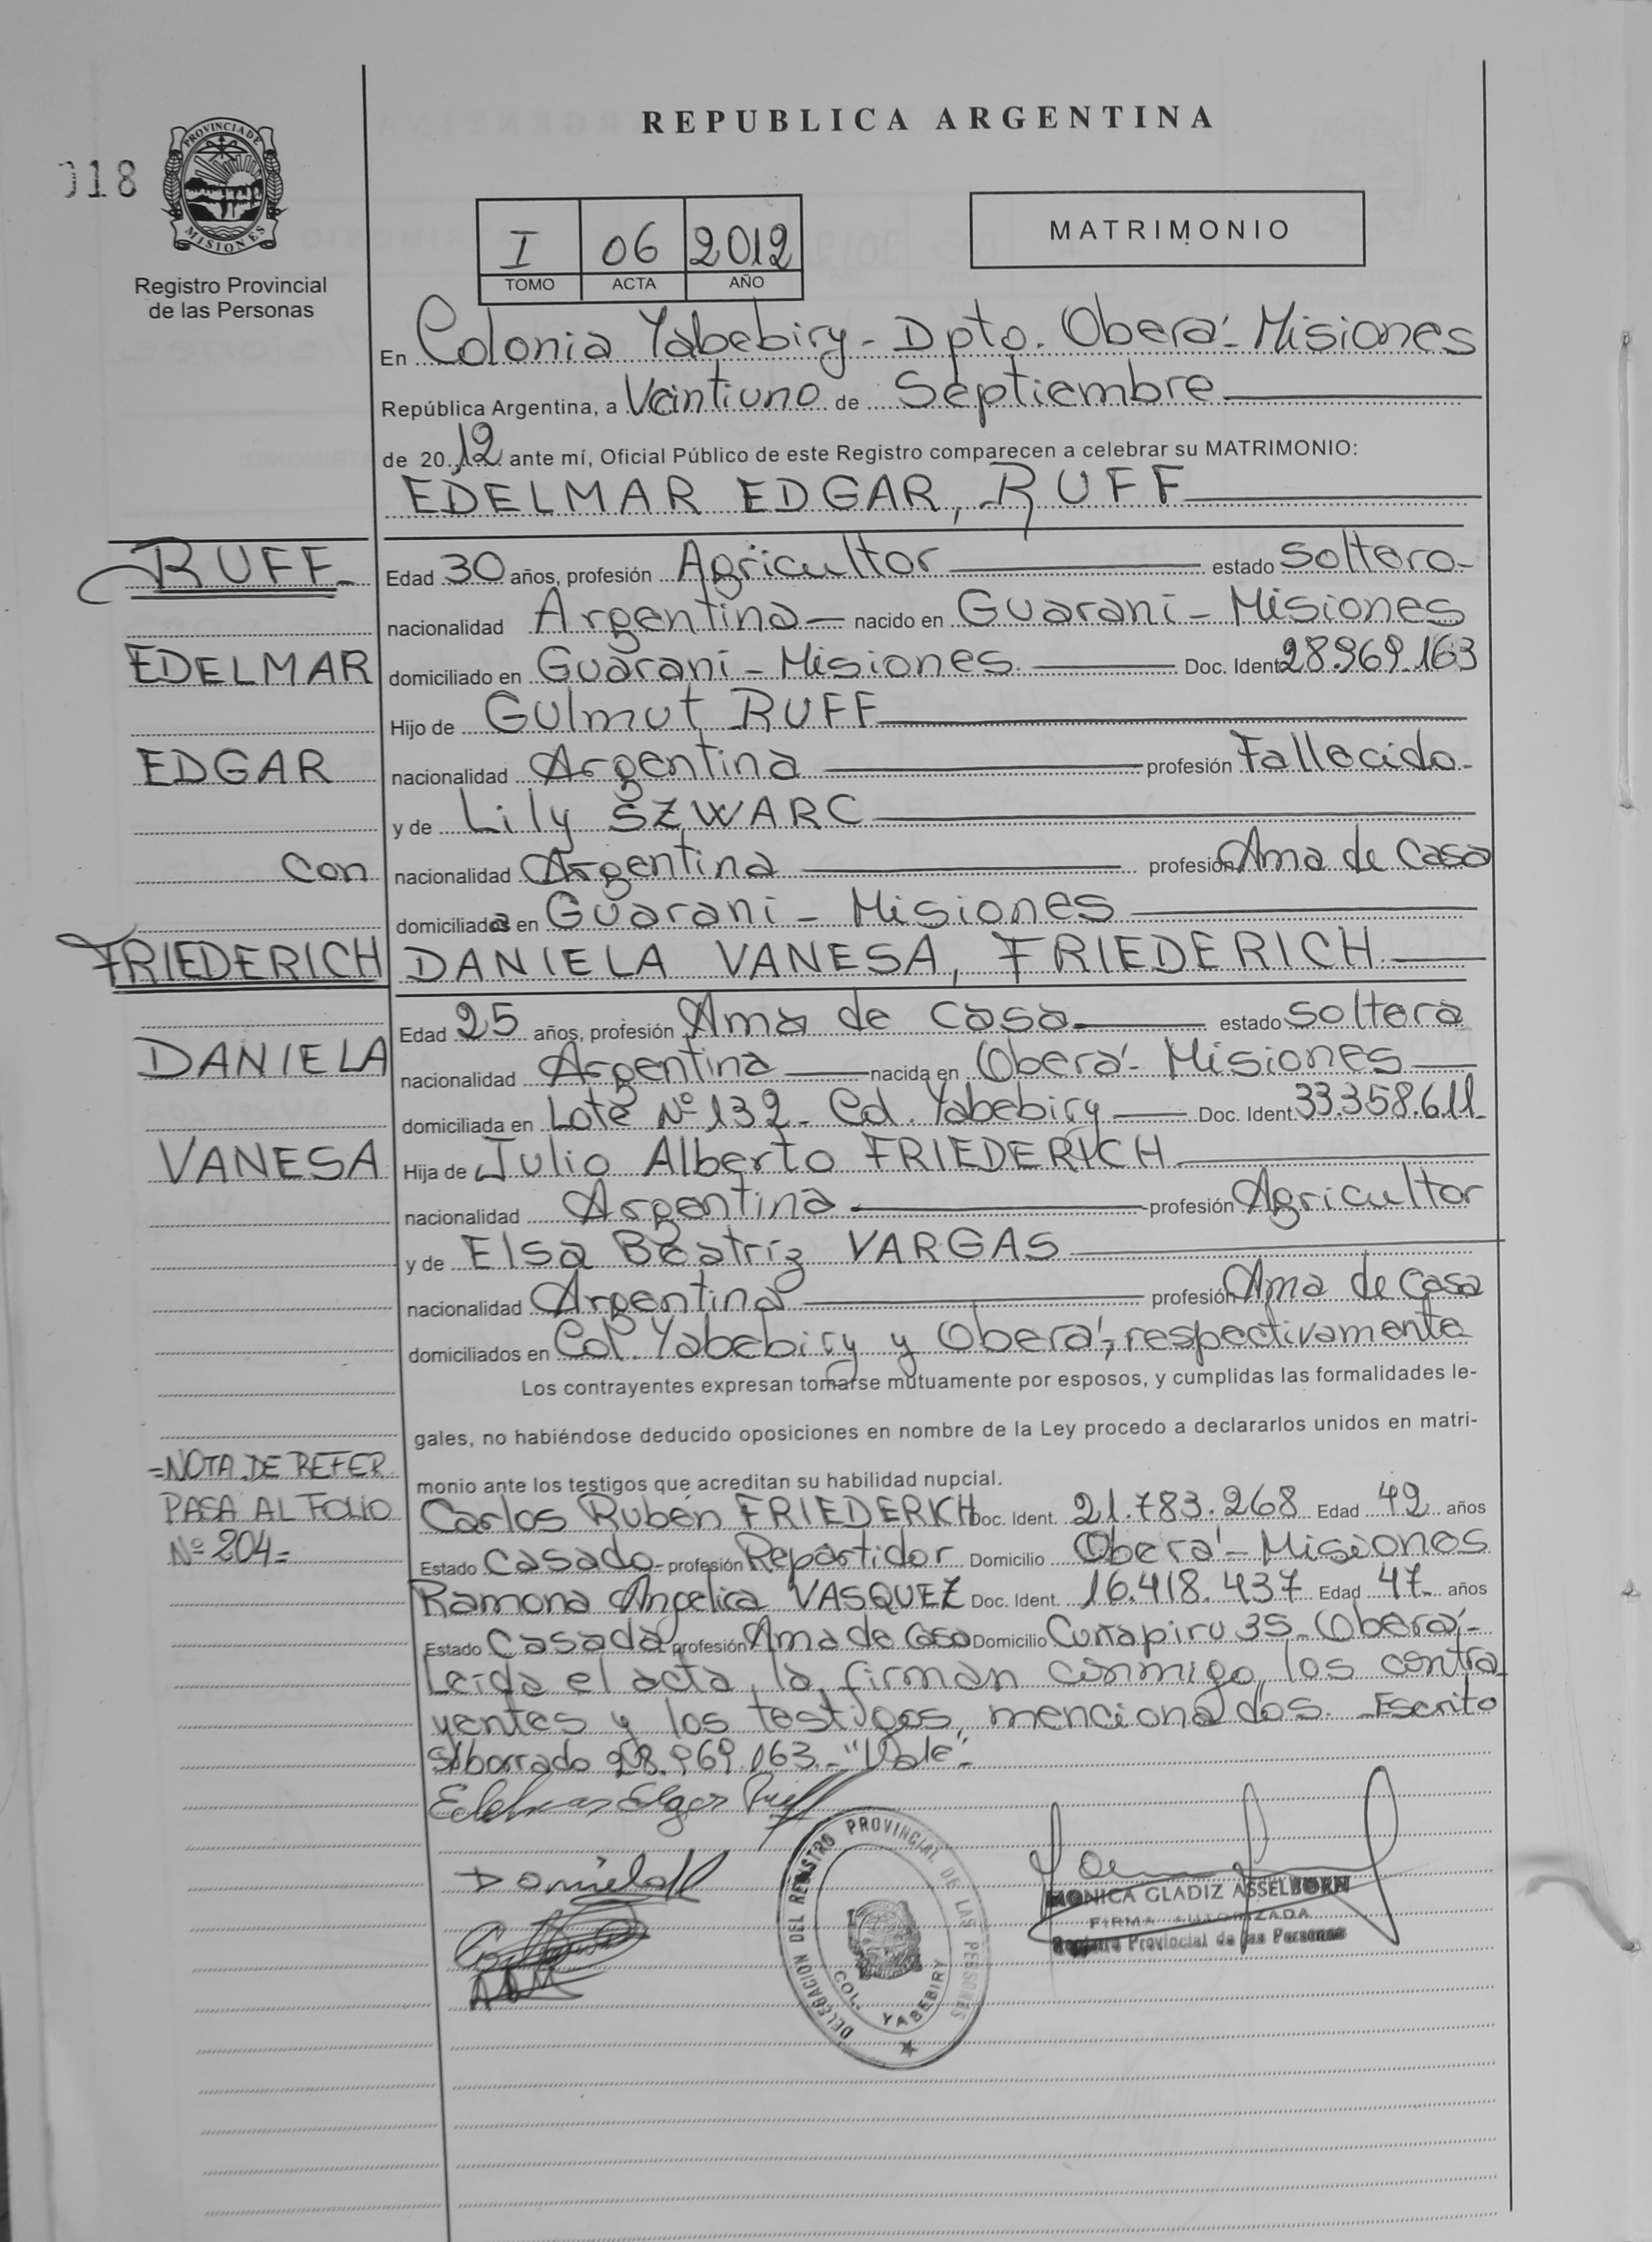 REPUBLICA ARGENTINA
018
PROVINCIA DE
MISIONES
Registro Provincial
de las Personas
I 06 2012
TOMO ACTA AÑO
MATRIMONIO
En Colonia Yabebiry - Dpto. Oberá - Misiones
República Argentina, a Veintiuno de Septiembre
de 2012 ante mí, Oficial Público de este Registro comparecen a celebrar su MATRIMONIO:
EDELMAR EDGAR, RUFF
RUFF
Edad 30 años, profesión Agricultor estado Soltero
nacionalidad Argentina nacido en Guaraní - Misiones
EDELMAR
domiciliado en Guaraní - Misiones Doc. Ident. 28.969.163
Hijo de Gulmut RUFF
EDGAR
nacionalidad Argentina profesión Fallecido
y de Lily SZWARC
con
nacionalidad Argentina profesión Ama de Casa
domiciliada en Guaraní - Misiones
FRIEDERICH
DANIELA VANESA, FRIEDERICH
Edad 25 años, profesión Ama de Casa estado Soltera
DANIELA
nacionalidad Argentina nacida en Oberá - Misiones
domiciliada en Lote Nº 132 - Col. Yabebiry Doc. Ident. 33.358.611
VANESA
Hija de Julio Alberto FRIEDERICH
nacionalidad Argentina profesión Agricultor
y de Elsa Beatríz VARGAS
nacionalidad Argentina profesión Ama de Casa
domiciliados en Col. Yabebiry y Oberá, respectivamente
Los contrayentes expresan tomarse mutuamente por esposos, y cumplidas las formalidades le-
gales, no habiéndose deducido oposiciones en nombre de la Ley procedo a declararlos unidos en matri-
monio ante los testigos que acreditan su habilidad nupcial.
=NOTA DE REFER.
PASA AL FOLIO
Nº 204=
Carlos Rubén FRIEDERICH Doc. Ident. 21.783.268 Edad 42 años
Estado Casado profesión Repartidor Domicilio Oberá - Misiones
Ramona Angelica VASQUEZ Doc. Ident. 16.418.437 Edad 47 años
Estado Casada profesión Ama de Casa Domicilio Cuñapiru 35 - Oberá -
Leída el acta, la firman conmigo, los contra
yentes y los testigos, mencionados. Escrito
s/borrado 28.969.163 - "Vale" -
Edelmar Edgar Ruff
Daniela
DELEGACION DEL REGISTRO PROVINCIAL DE LAS PERSONAS
COL. YABEBIRY
MONICA GLADIZ ASSELBORN
FIRMA AUTORIZADA
Registro Provincial de las Personas